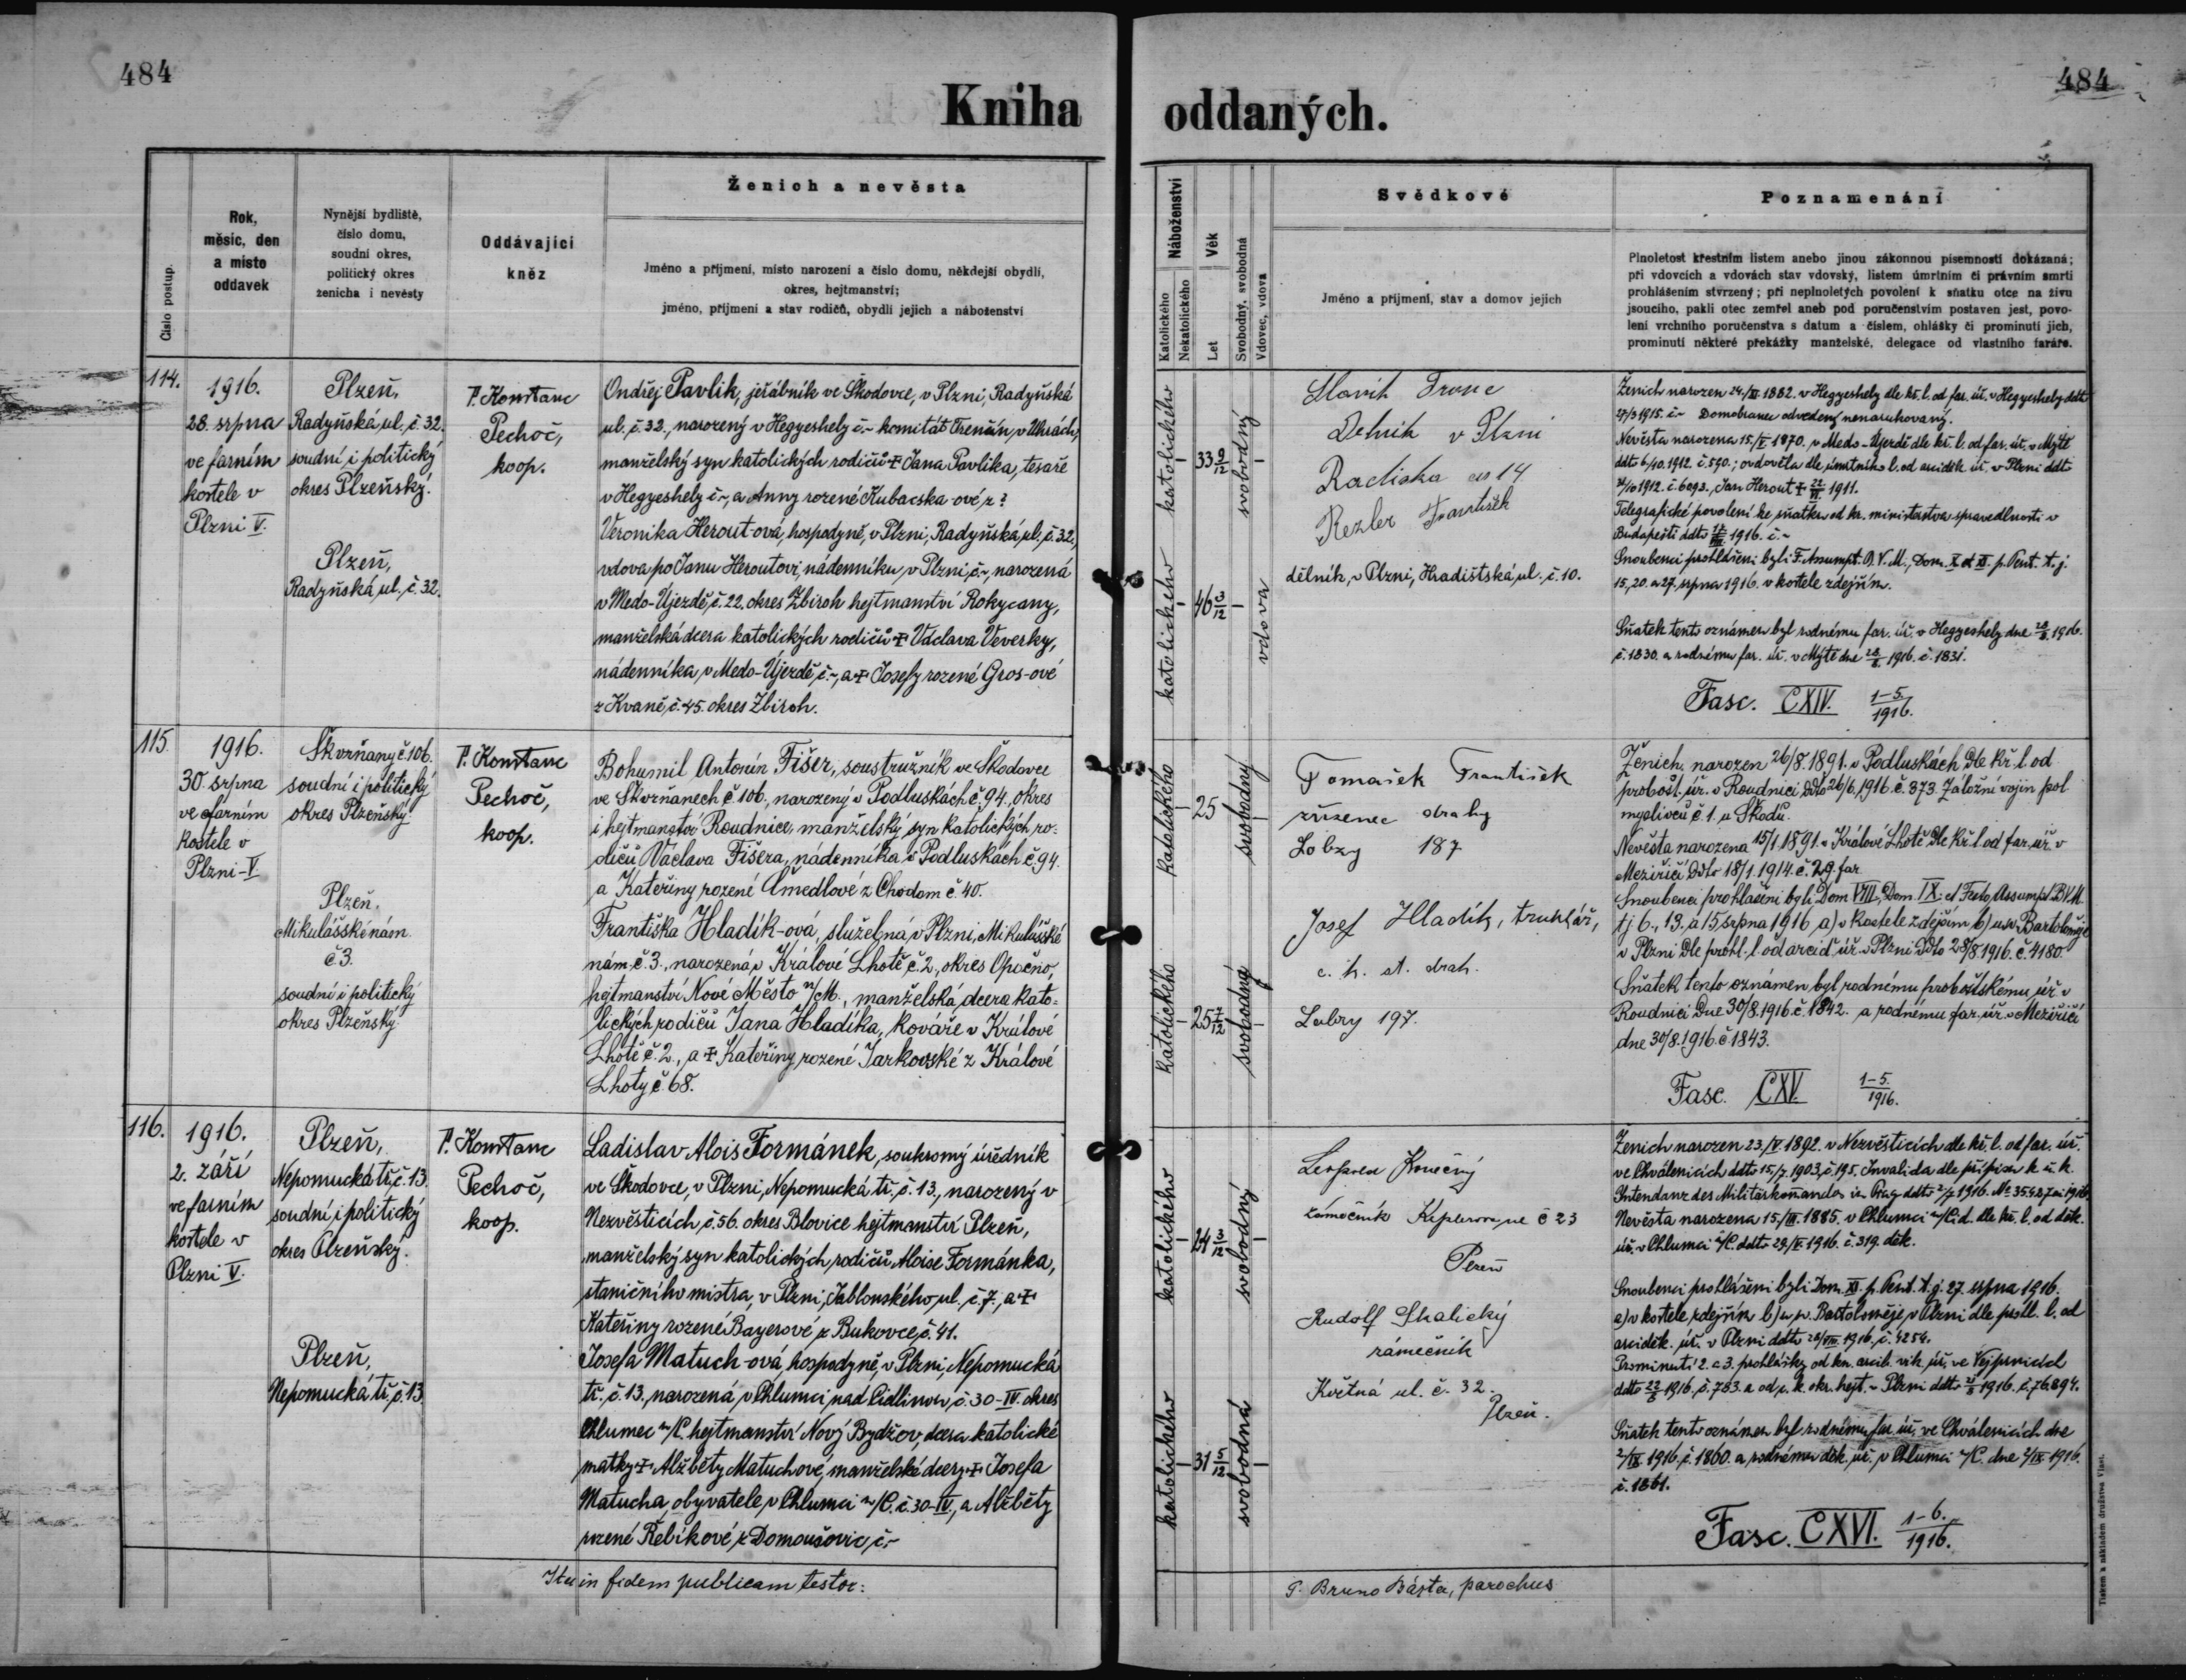 484
484
Kniha oddaných.
Číslo postup.
Rok,
měsíc, den
a místo
oddavek
Nynější bydliště,
číslo domu,
soudní okres,
politický okres
ženicha i nevěsty
Oddávající
kněz
Ženich a nevěsta
Jméno a příjmení, místo narození a číslo domu, někdejší obydlí,
okres, hejtmanství;
jméno, příjmení a stav rodičů, obydlí jejich a náboženství
Náboženství
Katolického
Nekatolického
Věk
Let
Svobodný, svobodná
Vdovec, vdova
Svědkové
Jméno a příjmení, stav a domov jejich
Poznamenání
Plnoletost křestním listem anebo jinou zákonnou písemností dokázaná;
při vdovcích a vdovách stav vdovský, listem úmrtním či právním smrti
prohlášením stvrzený; při neplnoletých povolení k sňatku otce na živu
jsoucího, pakli otec zemřel aneb pod poručenstvím postaven jest, povo-
lení vrchního poručenstva s datum a číslem, ohlášky či prominutí jich,
prominutí některé překážky manželské, delegace od vlastního faráře.
114.
1916.
28. srpna
ve farním
kostele v
Plzni V.
Plzeň,
Radyňská ul. č. 32.
soudní i politický
okres Plzeňský.
Plzeň,
Radyňská ul. č. 32.
P. Konstanc
Pechoč,
koop.
Ondřej Pavlik, jeřábník ve Škodovce, v Plzni, Radyňská
ul. č. 32., narozený v Hegyeshely č.- komitát Trenčín, v Uhrách,
manželský syn katolických rodičů + Jana Pavlika, tesaře
v Hegyeshely č.-, a Anny rozené Kubacska-ové, z ?
Veronika Herout-ová, hospodyně, v Plzni, Radyňská ul. č. 32.,
vdova po Janu Heroutovi, nádenníku, v Plzni, č.-, narozená
v Medo-Újezdě, č. 22. okres Zbiroh hejtmanství Rokycany,
manželská dcera katolických rodičů + Václava Veverky,
nádenníka, v Medo-Újezdě, č.-, a + Josefy rozené Gros-ové
z Kvaně, č. 45. okres Zbiroh.
katolického
33 9/12
svobodný
katolického
46 3/12
vdova
Slavík
Dělník v Plzni
14
Rezler František
dělník, v Plzni, Hradištská ul. č. 10.
Ženich narozen 24./XI. 1882. v Hegyeshely dle kř. l. od far. úř. v Hegyeshely ddto
27/3 1915. č.- Domobranec odvedený nenarukovaný.
Nevěsta narozena 15/V. 1870. v Medo-Újezdě dle kř. l. od far. úř. v Mýtě
ddto 6/10. 1912. č. 590.; ovdověla dle úmrtního l. od arciděk. úř. v Plzni ddto
/10 1912. č. 6093., Jan Herout + 1911.
Telegrafické povolení ke sňatku od kr. ministerstva spravedlnosti v
Budapešti ddto 1916. č.-
Snoubenci prohlášeni byli F. Assumpt. B. V. M., Dom. X et XI p. Pent. t. j.
15, 20. a 27. srpna 1916. v kostele zdejším.
Sňatek tento oznámen byl rodnému far. úř. v Hegyeshely dne 28/8. 1916.
č. 1830. a rodnému far. úř. v Mýtě dne 28/8 1916. č. 1831.
Fasc. CXIV. 1-5./1916.
115.
1916.
30. srpna
ve farním
kostele v
Plzni-V
Škvrňany č 106.
soudní i politický
okres Plzeňský.
Plzeň,
Mikulášské nám.
č 3.
soudní i politický
okres Plzeňský
P. Konstanc
Pechoč,
koop.
Bohumil Antonín Fišer, soustružník ve Škodovce
ve Škvrňanech č. 106., narozený v Podluskách č. 94. okres
i hejtmanství Roudnice, manželský syn katolických ro-
dičů Václava Fišera, nádenníka v Podluskách č. 94.
a Kateřiny rozené Šmedlové z Chodom č. 40.
Františka Hladík-ová, služebná, v Plzni, Mikulášské
nám. č. 3., narozená, v Králové Lhotě č. 2., okres Opočno,
hejtmanství Nové Město n/M., manželská dcera kato-
lických rodičů Jana Hladíka, kováře v Králové
Lhotě č. 2., a + Kateřiny rozené Jarkovské z Králové
Lhoty č. 68.
katolického
25
svobodný
katolického
25 7/12
svobodná
Tomašek František
zřízenec drahy
Lobzy 187
Josef Hladík, truhlář,
c. k. st. drah.
Lobzy 197.
Ženich narozen 26/8. 1891. v Podluskách dle kř. l. od
probošt. úř. v Roudnici ddto 26/6. 1916. č. 373. Záložní vojín pol.
myslivců č. 1. u Škodů.
Nevěsta narozena 15/1. 1891. v Králové Lhotě dle kř. l. od far. úř. v
Meziříčí ddto 18/1. 1914. č. 29. far.
Snoubenci prohlášeni byli Dom VIII, Dom. IX. et Festo Assumpt. B.V.M.
tj 6., 13. a 15 srpna 1916 a) v kostele zdejším b) u sv. Bartoloměje
v Plzni dle prohl. l. od arcid. úř. v Plzni ddto 28/8. 1916. č. 4180.
Sňatek tento oznámen byl rodnému proboštskému úř. v
Roudnici dne 30/8. 1916. č. 1842. a rodnému far. úř. v Meziříčí
dne 30/8. 1916. č 1843.
Fasc. CXV. 1-5./1916.
116.
1916.
2. září
ve farním
kostele v
Plzni V.
Plzeň,
Nepomucká tř. č. 13.
soudní i politický
okres Plzeňský.
Plzeň,
Nepomucká tř. č. 13.
P. Konstanc
Pechoč,
koop.
Ladislav Alois Formánek, soukromý úředník
ve Škodovce, v Plzni, Nepomucká tř. č. 13., narozený v
Nezvěsticích, č. 56. okres Blovice hejtmanství Plzeň,
manželský syn katolických rodičů Aloise Formánka,
staničního mistra, v Plzni, Jablonského ul. č. 7., a +
Kateřiny rozené Bayerové z Bukovce, č. 41.
Josefa Matuch-ová, hospodyně, v Plzni, Nepomucká
tř. č. 13., narozená, v Chlumci nad Cidlinou, č. 30-IV. okres
Chlumec n/C. hejtmanství Nový Bydžov, dcera katolické
matky + Alžběty Matuchové, manželské dcery + Josefa
Matucha, obyvatele v Chlumci n/C. č. 30-IV., a Alžběty
rozené Řebíkové z Domoušovic, č.-
katolického
24 3/12
svobodný
katolického
31 5/12
svobodná
Konečný
zámečník Keplerova ul č 23
Plzeň
Rudolf Skalický
zámečník
Květná ul. č. 32.
Plzeň.
Ženich narozen 23./V. 1892. v Nezvěsticích dle kř. l. od far. úř.
ve Chválenicích ddto 15/7. 1903, č. 195. Invalida dle přípisu k. u. k.
Intendanz des Militärkomandos in Prag ddto 2/7 1916.
Nevěsta narozena 15/III. 1885. v Chlumci n/Cid. dle kř. l. od děk.
úř. v Chlumci n/C. ddto 29/V. 1916. č. 319. děk.
Snoubenci prohlášeni byli Dom. XI. p. Pent. t. j. 27. srpna 1916.
a) v kostele zdejším b) u sv. Bartoloměje, v Plzni dle prohl. l. od
arciděk. úř. v Plzni ddto 28/VIII. 1916. č. 4254.
Prominutí 2. a 3. prohlášky od kn. arcib. vik. úř. ve Vejprnicích
ddto 22/8 1916. č. 763. a od c. k. okr. hejt. v Plzni ddto 1916. č. 76.894.
Sňatek tento oznámen byl rodnému far. úř. ve Chválenicích dne
2/IX 1916. č. 1860. a rodnému děk. úř. v Chlumci n/C. dne 2/IX. 1916.
č. 1861.
Fasc. CXVI. 1-6./1916.
Ita in fidem publicam testor:
P. Bruno Bárta, parochus
Tiskem a nákladem družstva Vlast.